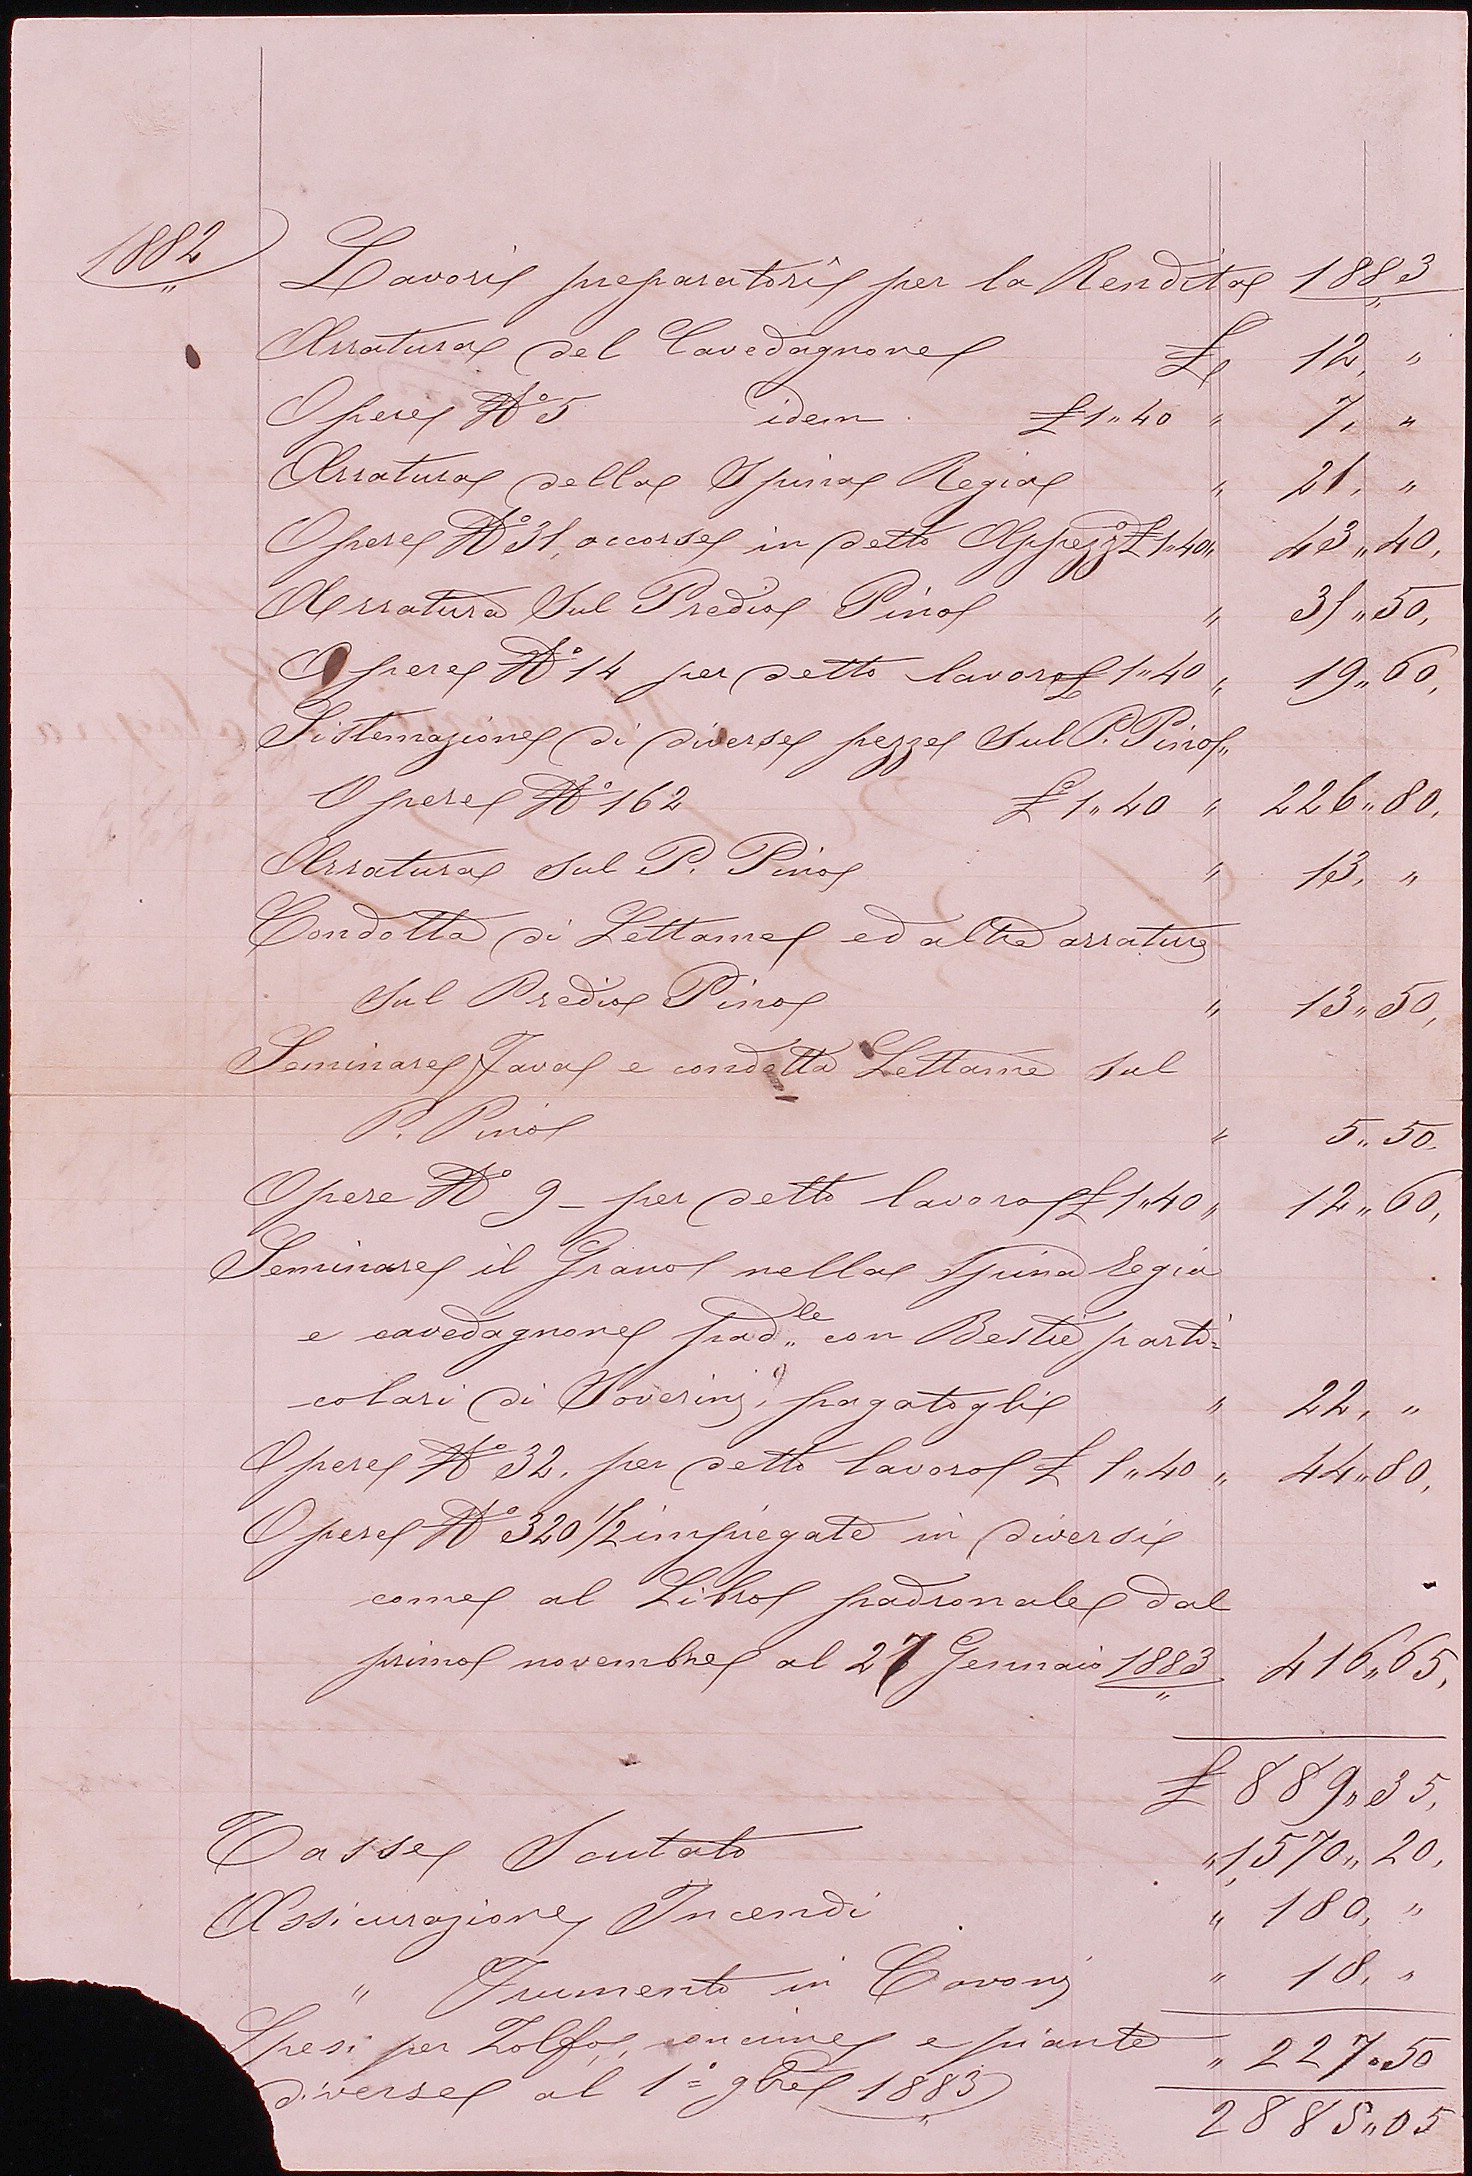 1882
Lavori preparatori per la Rendita 1883
Arratura del Cavedagnone £ 12, "
Opere N° 5 idem £ 1"40 " 7, "
Arratura della Spina Regia " 21, "
Opere N° 31, occorse in detto Appezz.° £ 1"40 " 43"40,
Arratura sul Predio Pino " 31"50,
Opere N° 14 per detto lavoro £ 1"40 " 19"60,
Sistemazione di diverse pezze sul P. Pino "
Opere N° 162 £ 1"40 " 226"80,
Arratura sul P. Pino " 13, "
Condotta di Lettame ed altre arrature
sul Predio Pino " 13"50,
Seminare Fava e condotta Lettame sul
P. Pino " 5"50.
Opere N° 9 - per detto lavoro £ 1"40 " 12"60,
Seminare il Grano nella Spina Regia
e cavedagnone pad.le con Bestie parti=
colari di Soverini, pagatogli " 22, "
Opere N° 32, per detto lavoro £ 1"40 " 44"80,
Opere N° 320 1/2 impiegate in diversi
come al Libro padronale dal
primo novembre al 27 Gennaio 1883 416"65,
£ 889"35,
Tasse Scutato " 1,570"20,
Assicurazione Incendi " 180, "
" Frumento in Covoni " 18, "
Spesi per Zolfo, concime e piante " 227"50
diverse al 1° 9bre 1883
2885"05